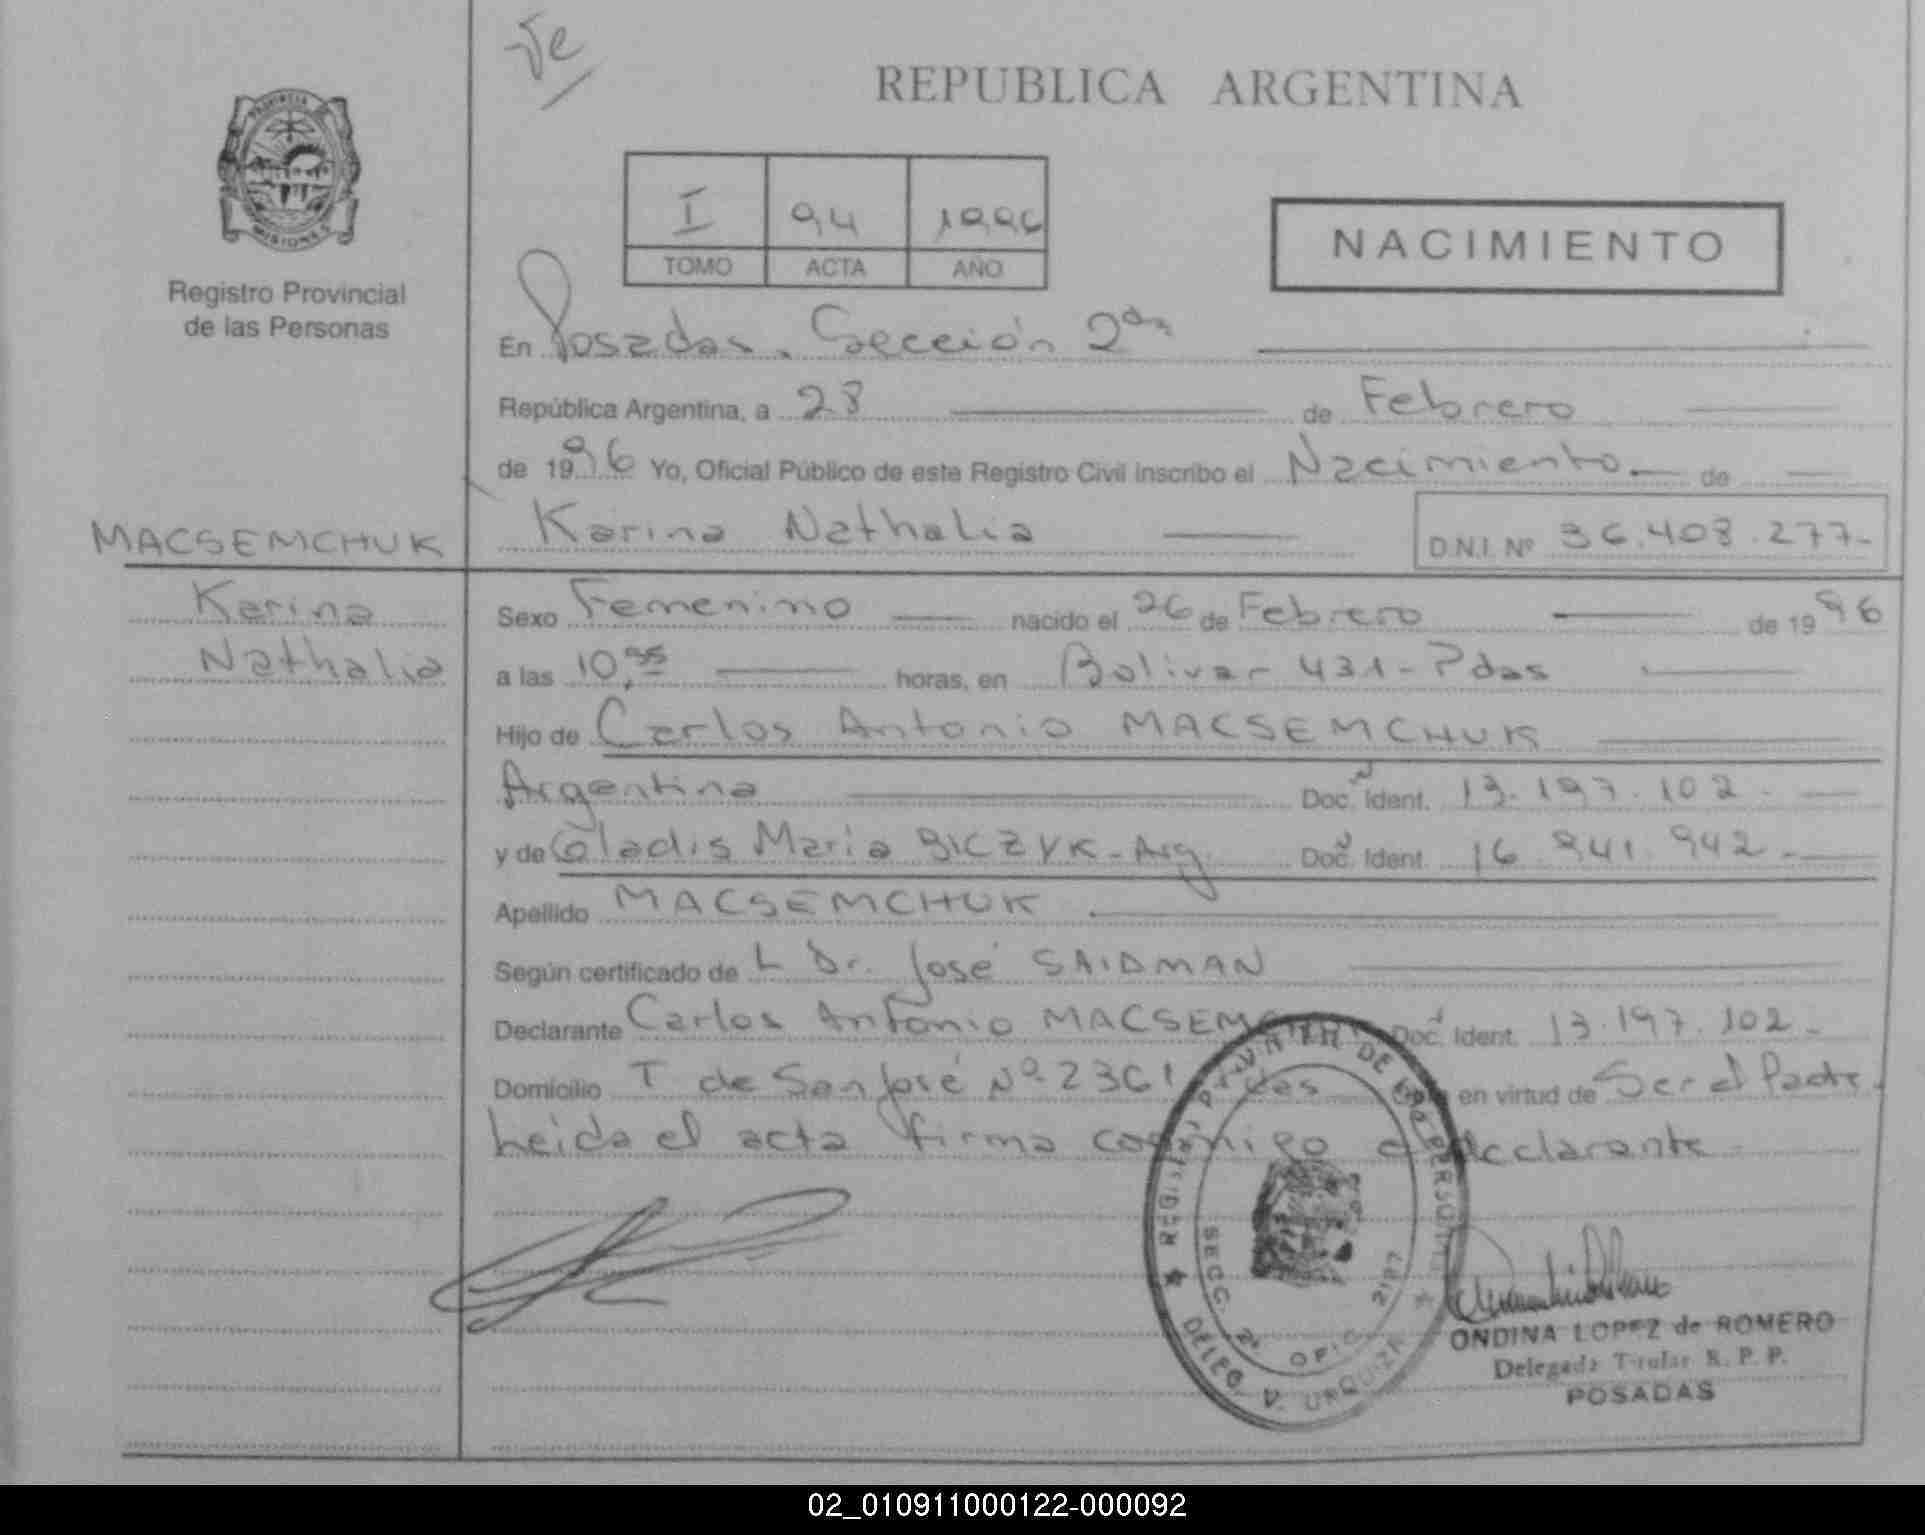 Ve
REPUBLICA ARGENTINA
PROVINCIA
MISIONES
Registro Provincial
de las Personas
I 94 1996
TOMO ACTA AÑO
NACIMIENTO
En Posadas. Sección 2da
República Argentina, a 28 de Febrero
de 1996 Yo, Oficial Público de este Registro Civil inscribo el Nacimiento de
MACSEMCHUK
Karina Nathalia D.N.I. Nº 36.408.277-
Karina
Nathalia
Sexo Femenino nacido el 26 de Febrero de 1996
a las 10, horas, en Bolivar 431 - Pdas
Hijo de Carlos Antonio MACSEMCHUK
Argentina Doc. Ident. 13.197.102-
y de Gladis Maria BICZYK - Arg. Doc. Ident. 16.841.942-
Apellido MACSEMCHUK
Según certificado de L Dr. José SAIDMAN
Declarante Carlos Antonio MACSEMCHUK Doc. Ident. 13.197.102-
Domicilio T de San José Nº 2361 Pdas en virtud de Ser el Padre.
Leida el acta firma conmigo el declarante
REGISTRO DE LAS PERSONAS
SECC. 2ª OFIC. 2197
DELEG. V. URQUIZA
ONDINA LOPEZ de ROMERO
Delegada Titular R. P. P.
POSADAS
02_010911000122-000092